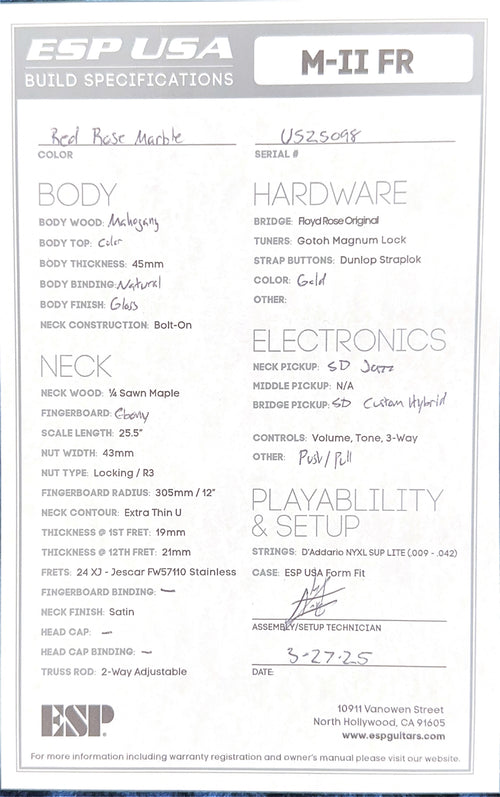 ESP USA
BUILD SPECIFICATIONS
M-II FR
Red Rose Marble
COLOR
US25098
SERIAL #
BODY
BODY WOOD: Mahogany
BODY TOP: Color
BODY THICKNESS: 45mm
BODY BINDING: Natural
BODY FINISH: Gloss
NECK CONSTRUCTION: Bolt-On
NECK
NECK WOOD: ¼ Sawn Maple
FINGERBOARD: Ebony
SCALE LENGTH: 25.5"
NUT WIDTH: 43mm
NUT TYPE: Locking / R3
FINGERBOARD RADIUS: 305mm / 12"
NECK CONTOUR: Extra Thin U
THICKNESS @ 1ST FRET: 19mm
THICKNESS @ 12TH FRET: 21mm
FRETS: 24 XJ - Jescar FW57110 Stainless
FINGERBOARD BINDING: —
NECK FINISH: Satin
HEAD CAP: —
HEAD CAP BINDING: —
TRUSS ROD: 2-Way Adjustable
HARDWARE
BRIDGE: Floyd Rose Original
TUNERS: Gotoh Magnum Lock
STRAP BUTTONS: Dunlop Straplok
COLOR: Gold
OTHER:
ELECTRONICS
NECK PICKUP: SD Jazz
MIDDLE PICKUP: N/A
BRIDGE PICKUP: SD Custom Hybrid
CONTROLS: Volume, Tone, 3-Way
OTHER: Push/Pull
PLAYABLILITY
& SETUP
STRINGS: D'Addario NYXL SUP LITE (.009 - .042)
CASE: ESP USA Form Fit
ASSEMBLY/SETUP TECHNICIAN
3-27-25
DATE:
ESP
10911 Vanowen Street
North Hollywood, CA 91605
www.espguitars.com
For more information including warranty registration and owner's manual please visit our website.